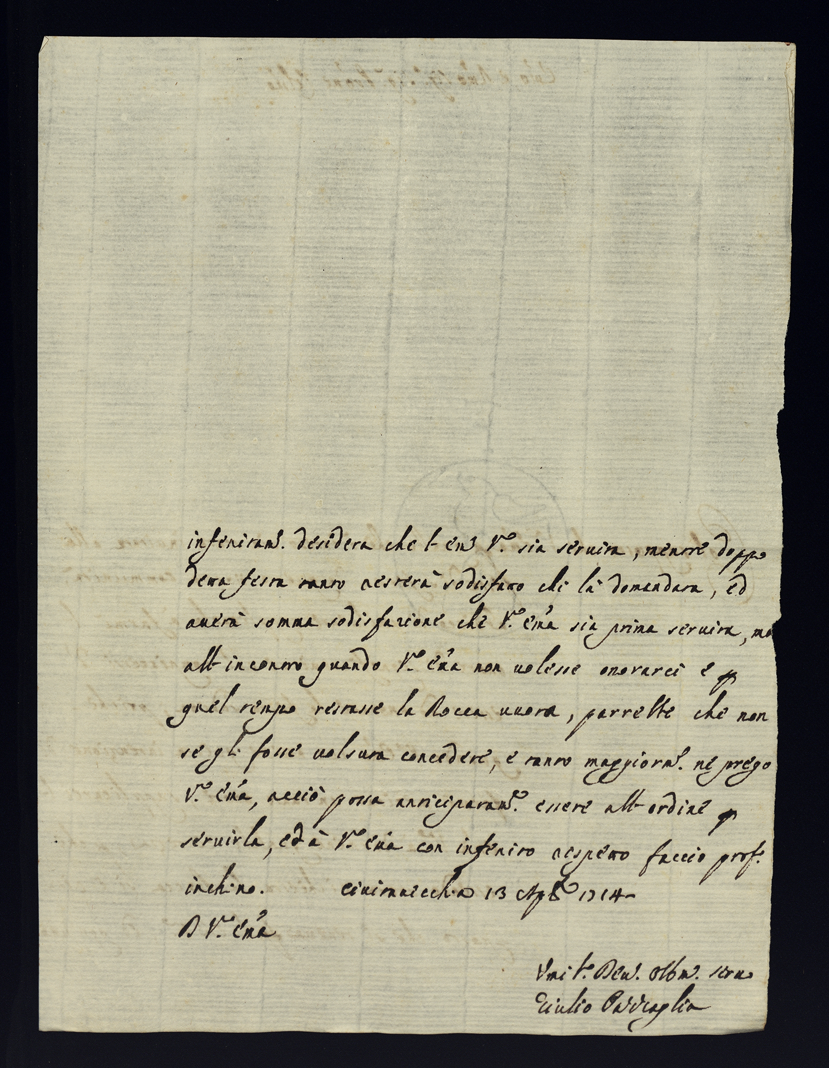 infinitam.e desidera che l'em.a V.ra sia servita, mentre doppo
detta festa tanto resterà sodisfatto chi là domandata, ed
averà somma sodisfazione che V.ra Em̃a sia prima servita, ma
all'incontro quando V.ra Em̃a non volesse onorarci e p
quel tempo restasse la Rocca vuota, parrebbe che non
se gli fosse volsuta concedere, e tanto maggiorm.e ne prego
V.ra Em̃a, acciò possa anticipatam.e essere all'ordine p
servirla, ed à V.ra Em̃a con infinito rispetto faccio prof.o
inchino. Civitavecchia 13 Ap.le 1714
D V.ra Em̃a
Um.o Dev. Obb.mo serv.o
Giulio Pazzaglia